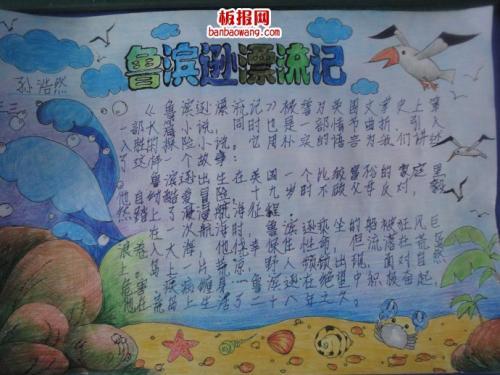 板报网
banbaowang.com
鲁滨逊漂流记
孙浩然
《鲁滨逊漂流记》被誉为英国文学史上第
一部长篇小说,同时也是一部情节曲折,引人
入胜的探险小说。它用朴实的语言为我们讲述
了这样一个故事:
鲁滨逊出生在英国一个比较富裕的家庭里
他 爱冒险,十九岁时不顾父母反对,毅
然踏上了漫漫航海征程.
在一次航海时,鲁滨逊乘坐的船被狂风巨
浪卷入大海,他侥幸保住性命,但流落在荒
上。岛上一片荒凉,野人频频出现,面对自然
鲁滨逊在绝望中积极奋起,
在荒岛上生活了二十八年之久。